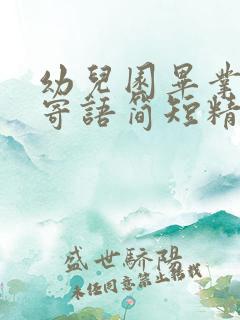 幼兒園畢業
寄語简短精
盛世驕陽
未經同意禁止轉載